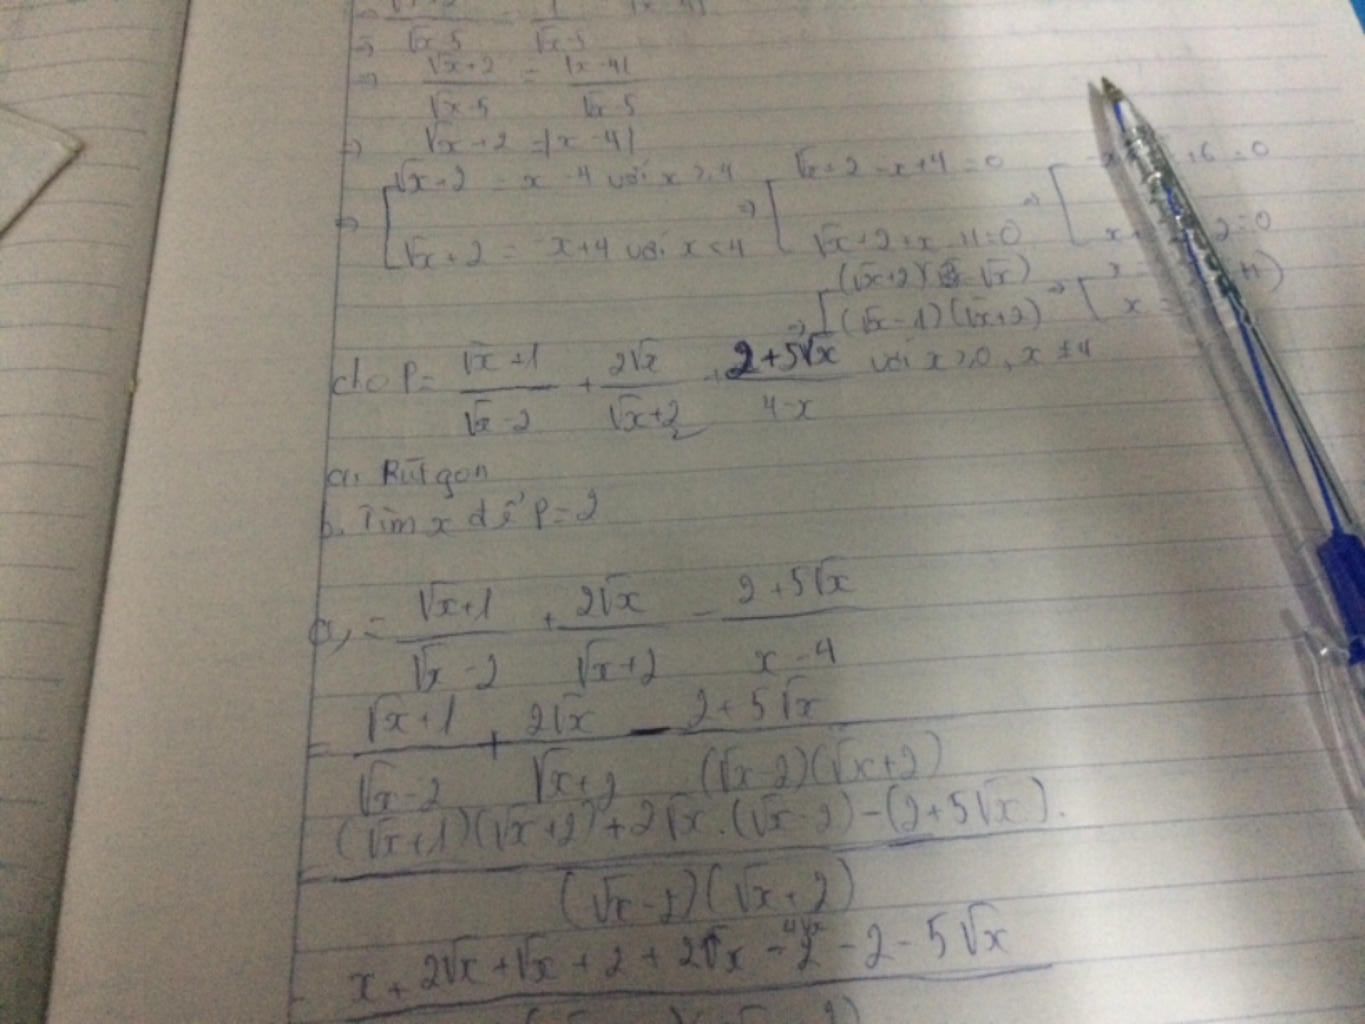 ⇒ √x-5 √x-5
⇒ (√x+2)/(√x-5) = |x-4|/(√x-5)
⇒ √x+2 = |x-4|
⇒ [ √x+2 = x-4 với x ≥ 4 ⇒ [ √x+2-x+4=0 ⇒ [ -x +6=0
√x+2 = -x+4 với x<4 √x+2+x-4=0 x 2=0
⇒ [ (√x+2)( -√x) ⇒ [ x
(√x-1)(√x+2) x =
cho P= (√x+1)/(√x-2) + 2√x/(√x+2) + (2+5√x)/(4-x) với x≥0, x≠4
a. Rút gọn
b. Tìm x để P=2
a, = (√x+1)/(√x-2) + 2√x/(√x+2) - (2+5√x)/(x-4)
= (√x+1)/(√x-2) + 2√x/(√x+2) - (2+5√x)/((√x-2)(√x+2))
= ((√x+1)(√x+2)+2√x.(√x-2)-(2+5√x))/((√x-2)(√x+2))
= x+2√x+√x+2+2√x - 4√x -2-5√x